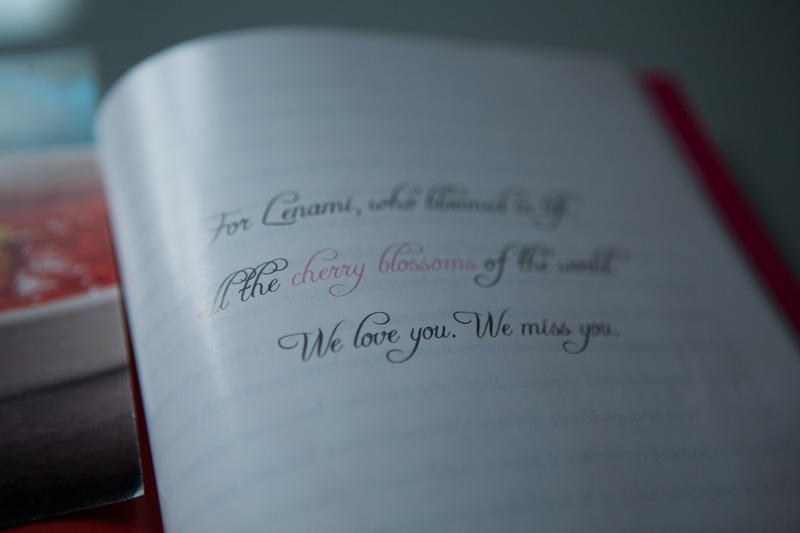 For Lenami, who bloomed to life
all the cherry blossoms of the world.
We love you. We miss you.